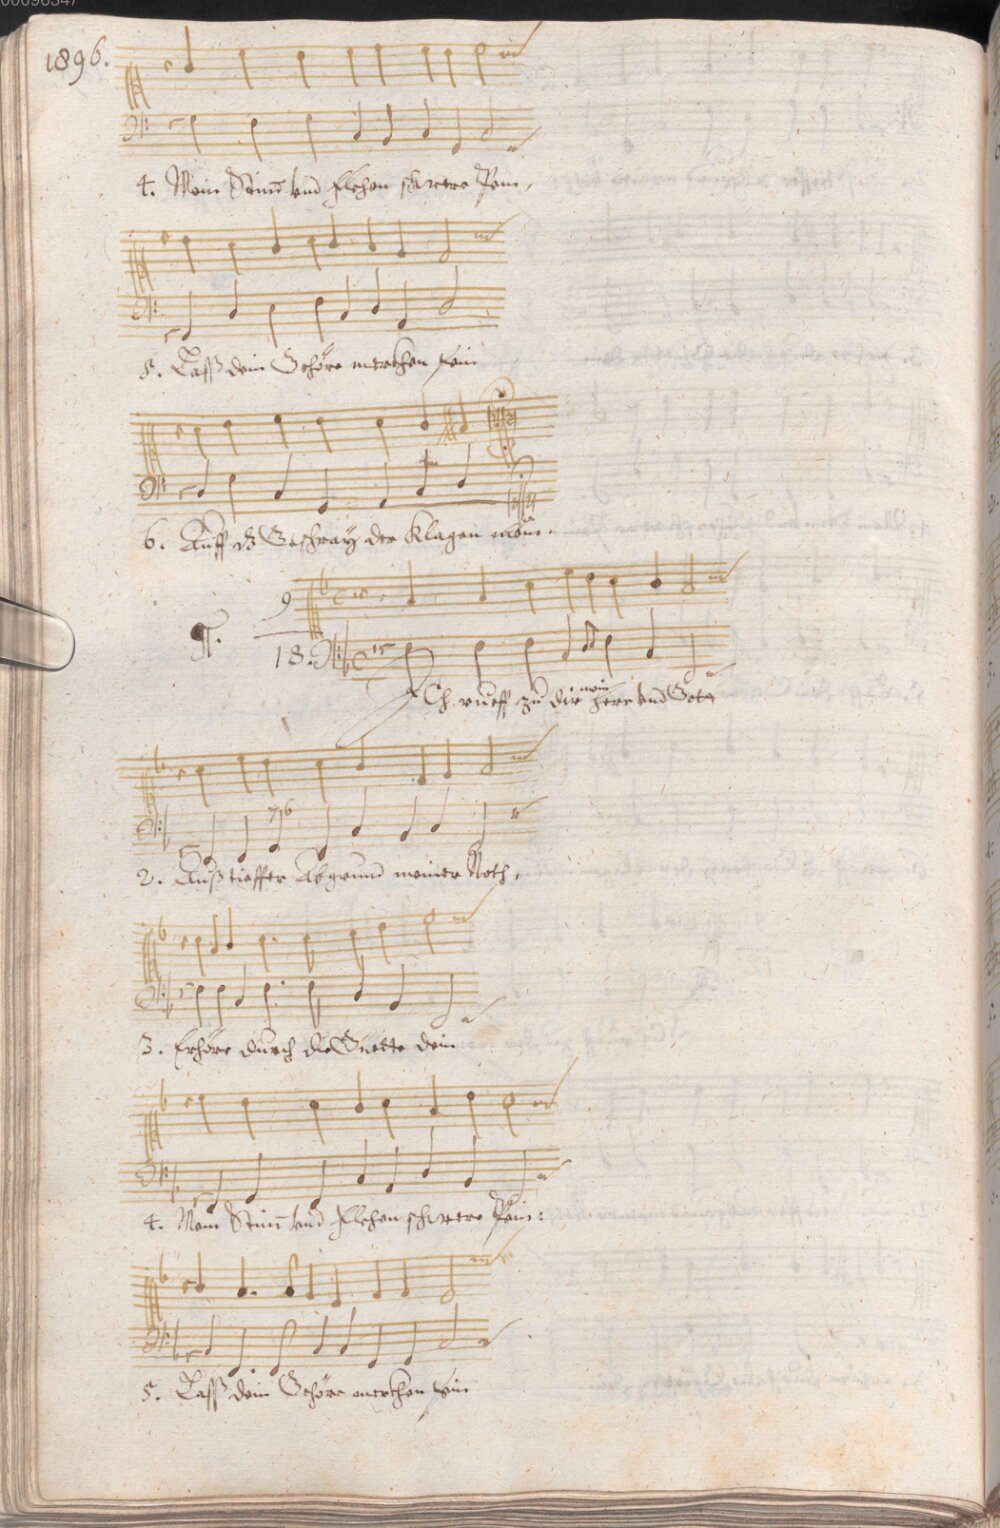 00096347
1896.
4. Mein Stim̄ vnd flehen schwere Pein,
5. Lasß dein Gehöre merckhen fein
6. Auff dz Geschray der Klagen mein.
9
18.
ICh rueff zu dir mein Herr vnd Gott
76
2. Auß tieffter Abgrund meiner Noth,
3. Erhöre durch die Guette dein
4. Mein Stim̄ vnd flehen schwere Pein:
5. Lasß dein Gehöre merckhen fein